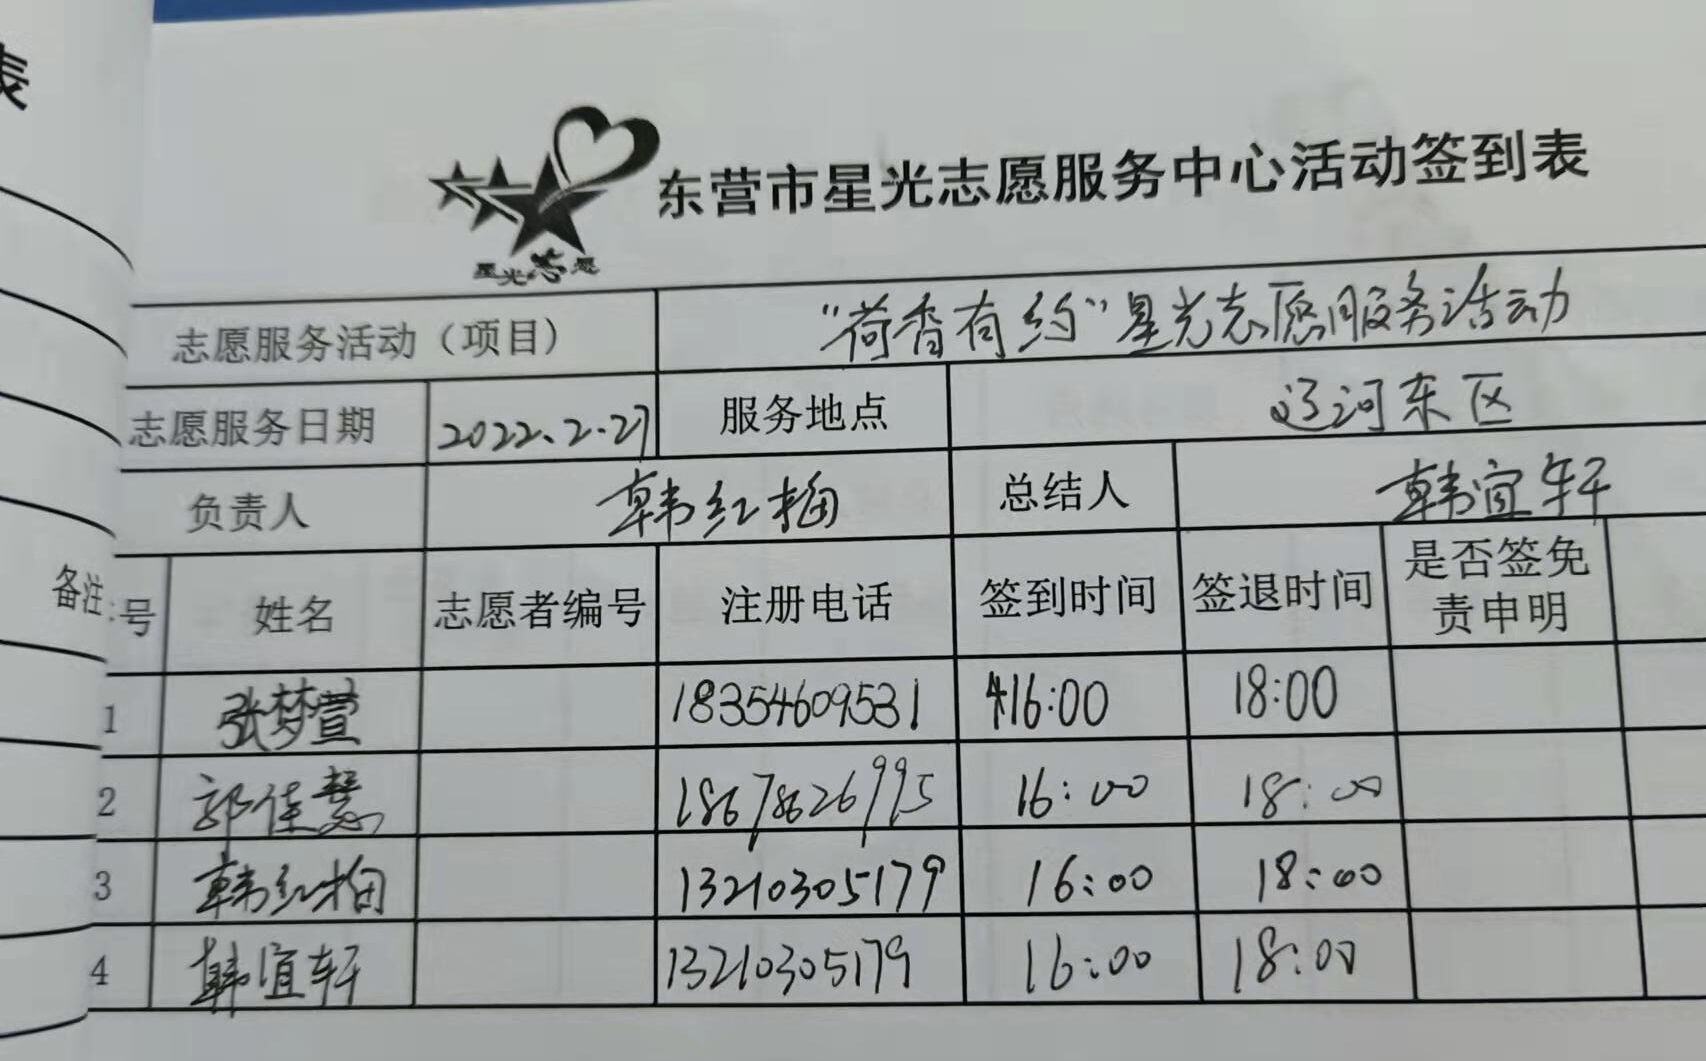 表
备注:
星光志愿
东营市星光志愿服务中心活动签到表
志愿服务活动（项目） “荷香有约”星光志愿服务活动
志愿服务日期 2022.2.27 服务地点 辽河东区
负责人 韩红梅 总结人 韩宜轩
号 姓名 志愿者编号 注册电话 签到时间 签退时间 是否签免
责申明
1 张梦萱 18354609531 16:00 18:00
2 郭佳慧 18678626995 16:00 18:00
3 韩红梅 13210305179 16:00 18:00
4 韩宜轩 13210305179 16:00 18:00